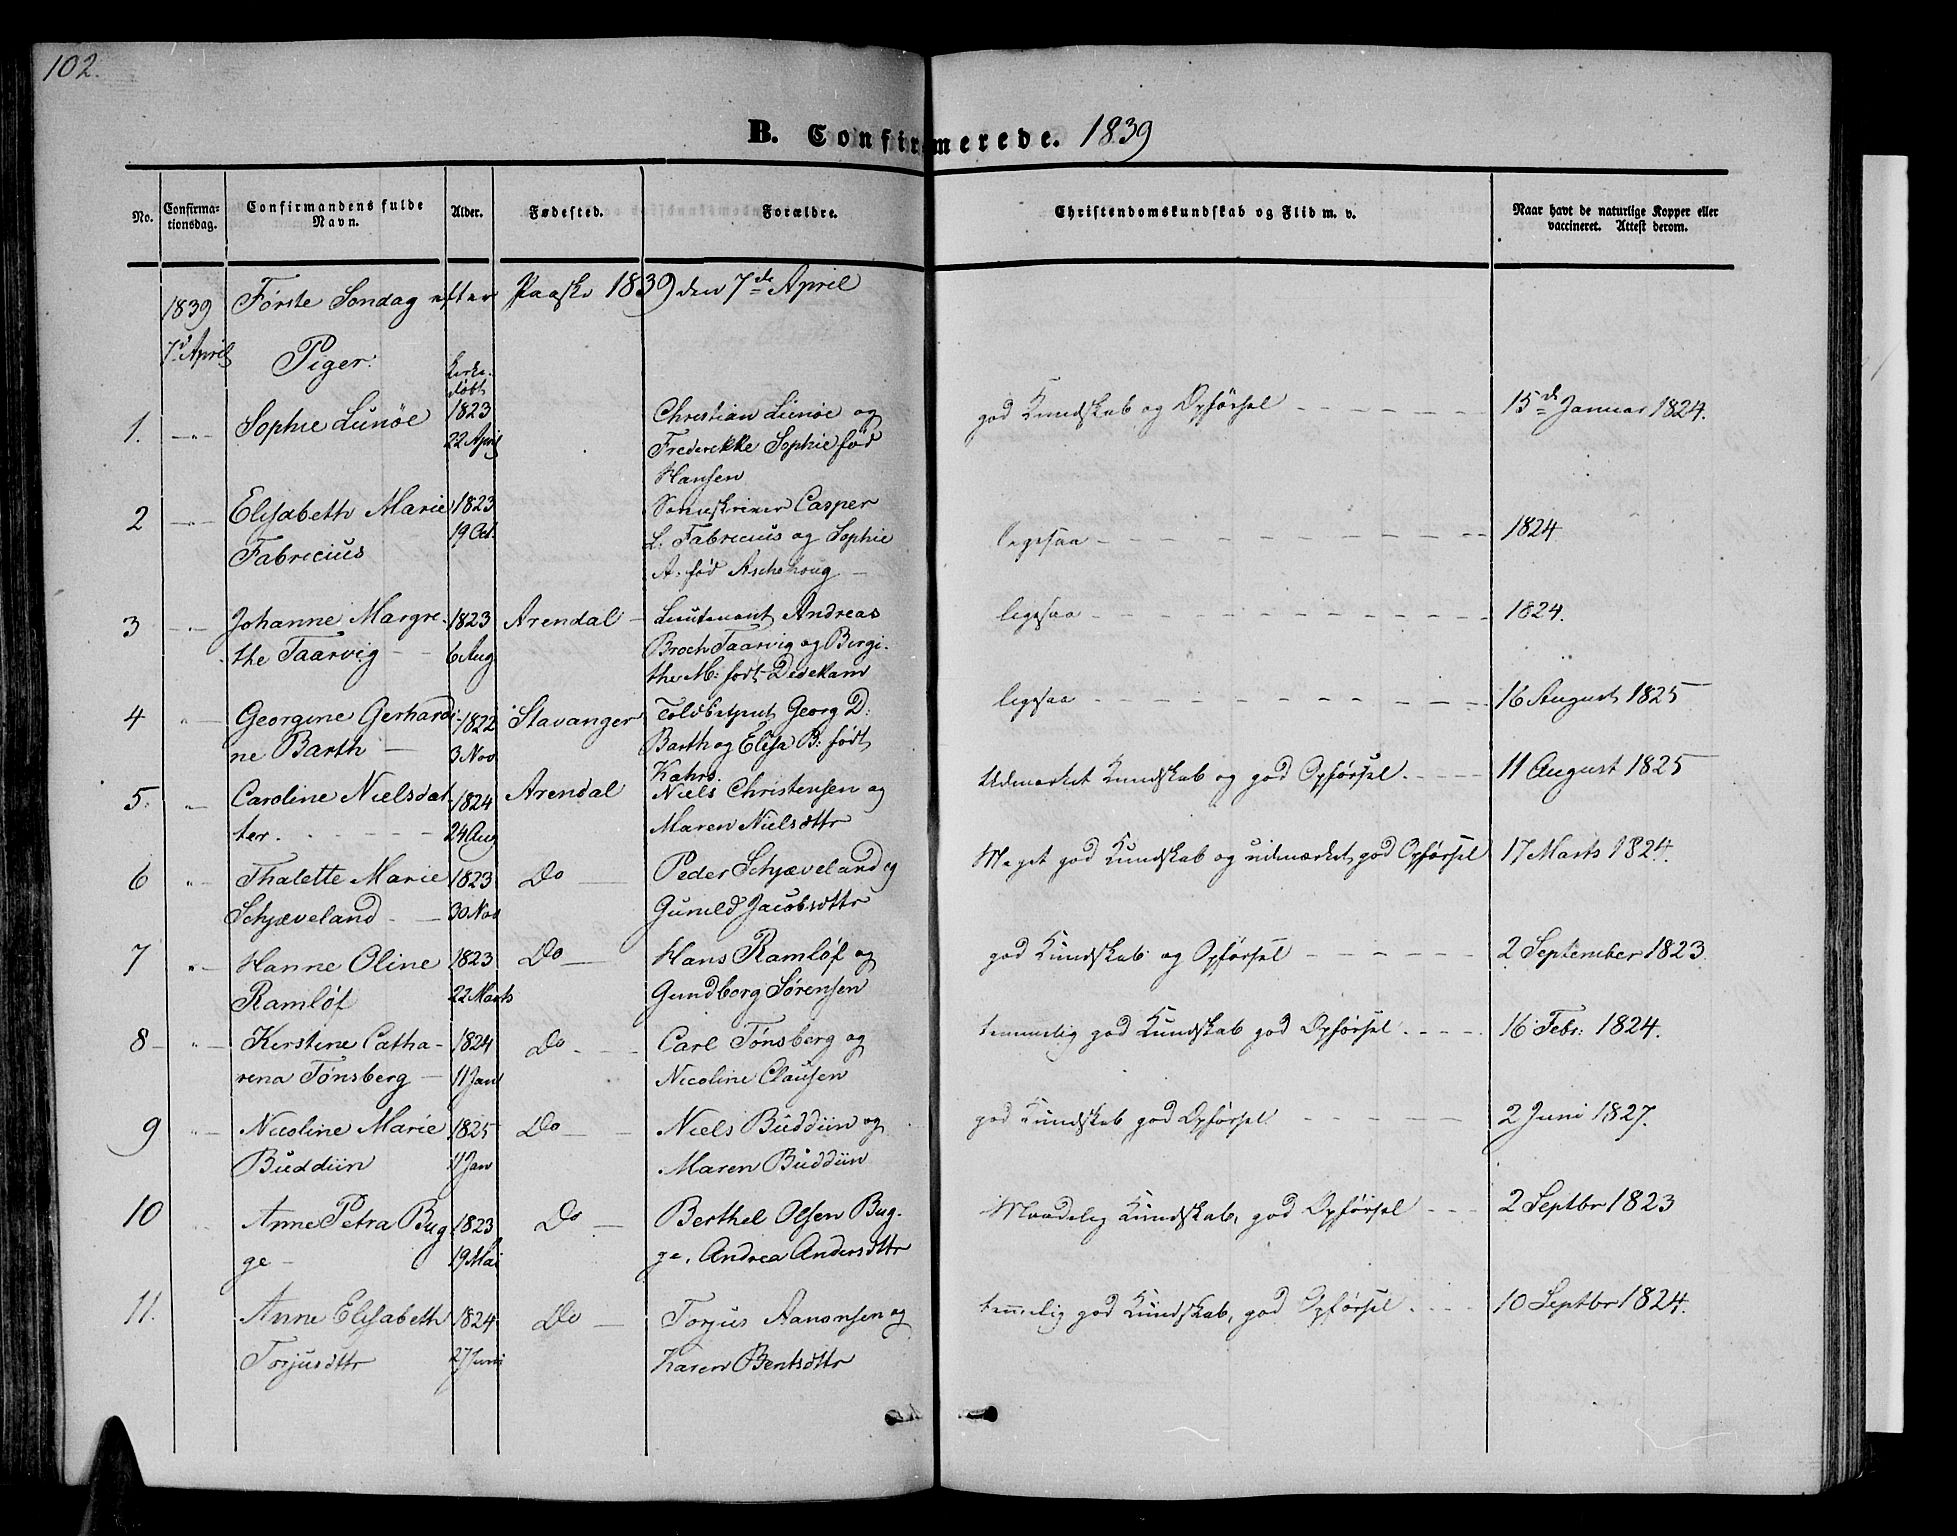 102.
B. Confirmerede. 1839
No.
Confirma-
tionsdag.
Confirmandens fulde
Navn.
Alder.
Fødested.
Forældre.
Christendomskundskab og Flid m. v.
Naar havt de naturlige Kopper eller
vaccineret. Attest derom.
1839 Første Søndag efter Paaske 1839 den 7de April
7de April Piger:
Kirke-
døbt
1. Sophie Lunöe 1823 Christian Lunöe og god Kundskab og Opförsel 15de Januar 1824.
22 April Frederikke Sophie fød
Hansen
2 Elisabeth Marie 1823 Casper
Fabricius 19 Oct. L. Fabricius og Sophie ligesaa 1824
A. fød Aschehoug
3 Johanne Margre- 1823 Arendal Lieutenant Andreas ligesaa 1824.
the Taarvig 6 Aug Broch Taarvig og Birgi-
the M: født Dedekam
4 Georgine Gerhardi- 1822 Stavanger Toldbetjent Georg D: ligesaa 16 August 1825
ne Barth 3 Nov Barth og Elisa B: født
Kahrs.
5. Caroline Nielsdat- 1824 Arendal Niels Christensen og Udmærket Kundskab og god Opförsel. 11 August 1825
ter. 24 Aug Maren Nielsdttr
6 Thalette Marie 1823 Do Peder Schjæveland og Meget god Kundskab og udmærket god Opførsel 17 Marts 1824.
Schjæveland 30 Nov Guneld Jacobsdttr
7 Hanne Oline 1823 Do Hans Ramløf og god Kundskab og Opførsel 2 September 1823.
Ramløf 22 Marts Gundborg Sörensen
8 Kirstine Catha- 1824 Do Carl Tønsberg og temmelig god Kundskab god Opførsel 16 Febr: 1824.
rina Tønsberg 11 Jan Nicoline Clausen
9 Nicoline Marie 1825 Do Niels Buddün og god Kundskab god Opförsel 2 Juni 1827.
Buddün 11 Jan Maren Buddün
10 Anne Petra Bug 1823 Do Berthel Olsen Bug- Maadelig Kundskab, god Opførsel 2 Septbr 1823
ge 19 Mai ge, Andrea Andersdttr
11. Anne Elisabeth 1824 Do Torjus Aanonsen og temelig god Kundskab, god Opførsel. 10 Septbr 1824.
Torjusdttr 27 Juni Karen Bentsdttr